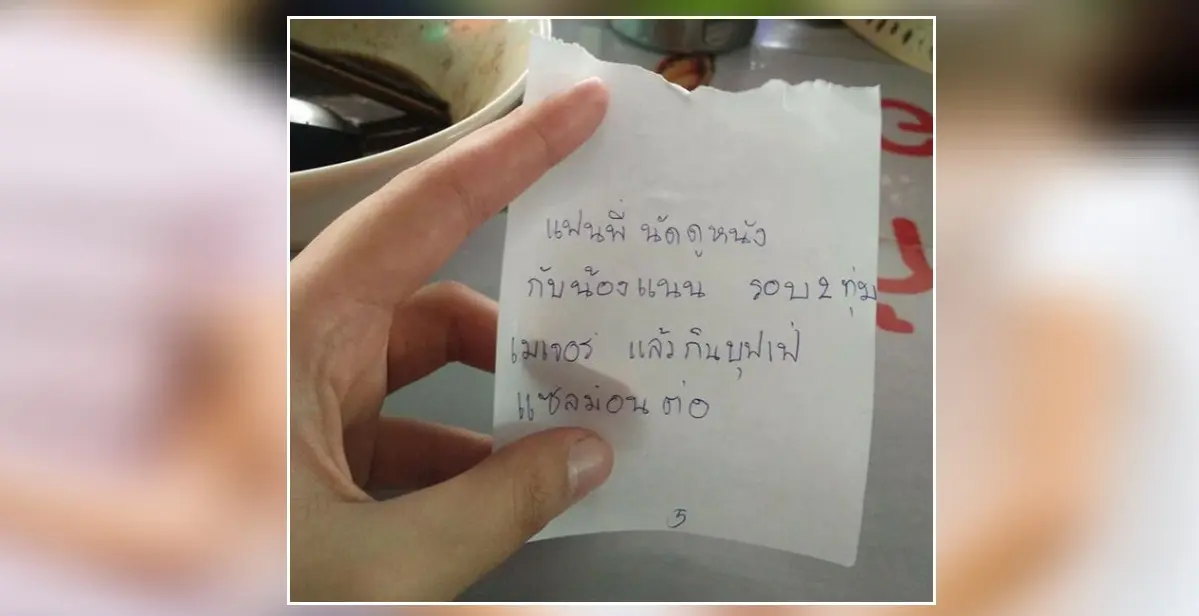 แฟนพี่ นัดดูหนัง
กับน้องแนน รอบ 2 ทุ่ม
เมเจอร์ แล้วกินบุฟเฟ่
แซลม่อน ต่อ
5